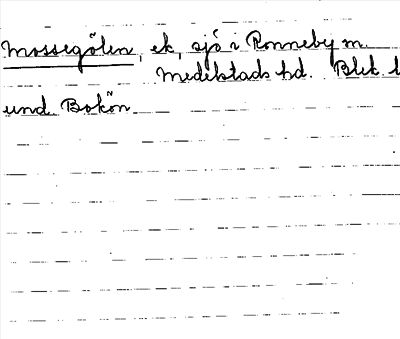 Mossegölen, ek, sjö i Ronneby m.
Medelstads hd. Blek. l
und. Bokön